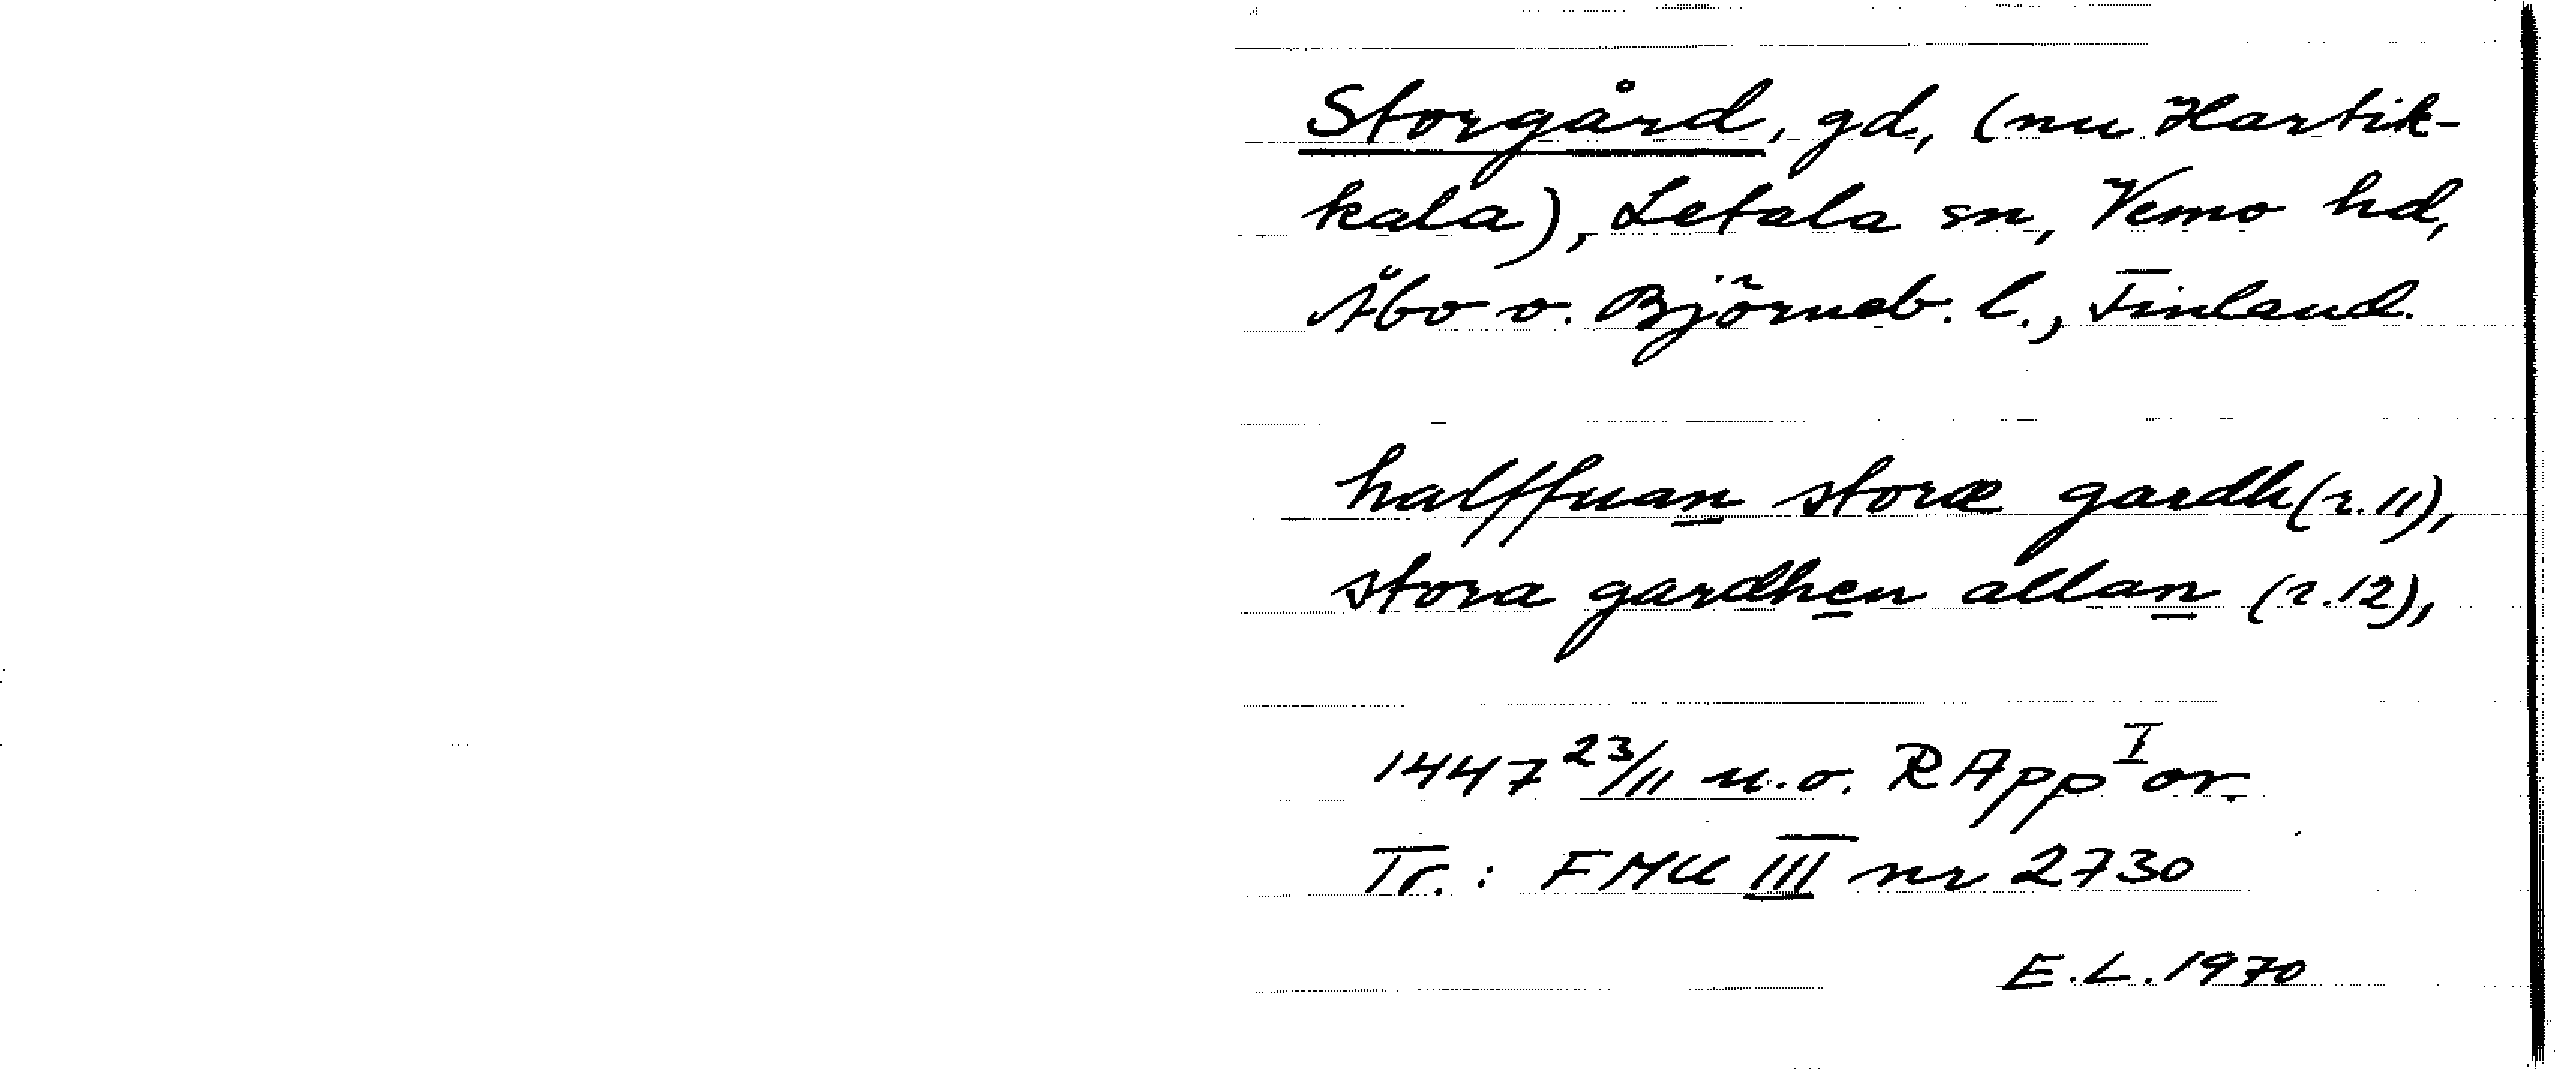 Storgård, gd, (nu Hartik-
kala), Letala sn, Vemo hd,
Åbo o. Björneb. l., Finland.
halffuan storæ gardh (r. 11),
stora gardhen allan (r. 12),
1447 23/11 u.o. RApp I or.
Tr.: FMU III nr 2730
E.L. 1970